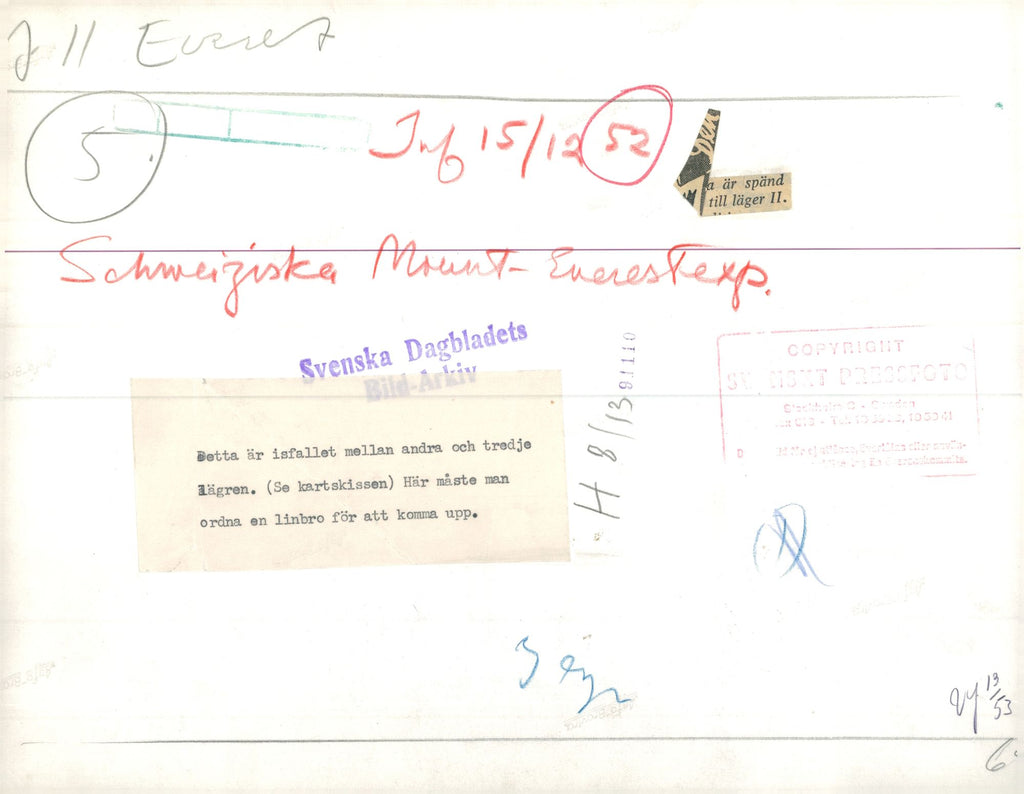 J 11 Everest
5
Inf 15/12 52
Den
a är spänd
till läger II.
Schweiziska Mount-Everestexp.
Svenska Dagbladets
Bild-Arkiv
91110
H 8/13
COPYRIGHT
SVENSKT PRESSFOTO
Stockholm C - Sweden
Detta är isfallet mellan andra och tredje
lägren. (Se kartskissen) Här måste man
ordna en linbro för att komma upp.
13/53
6